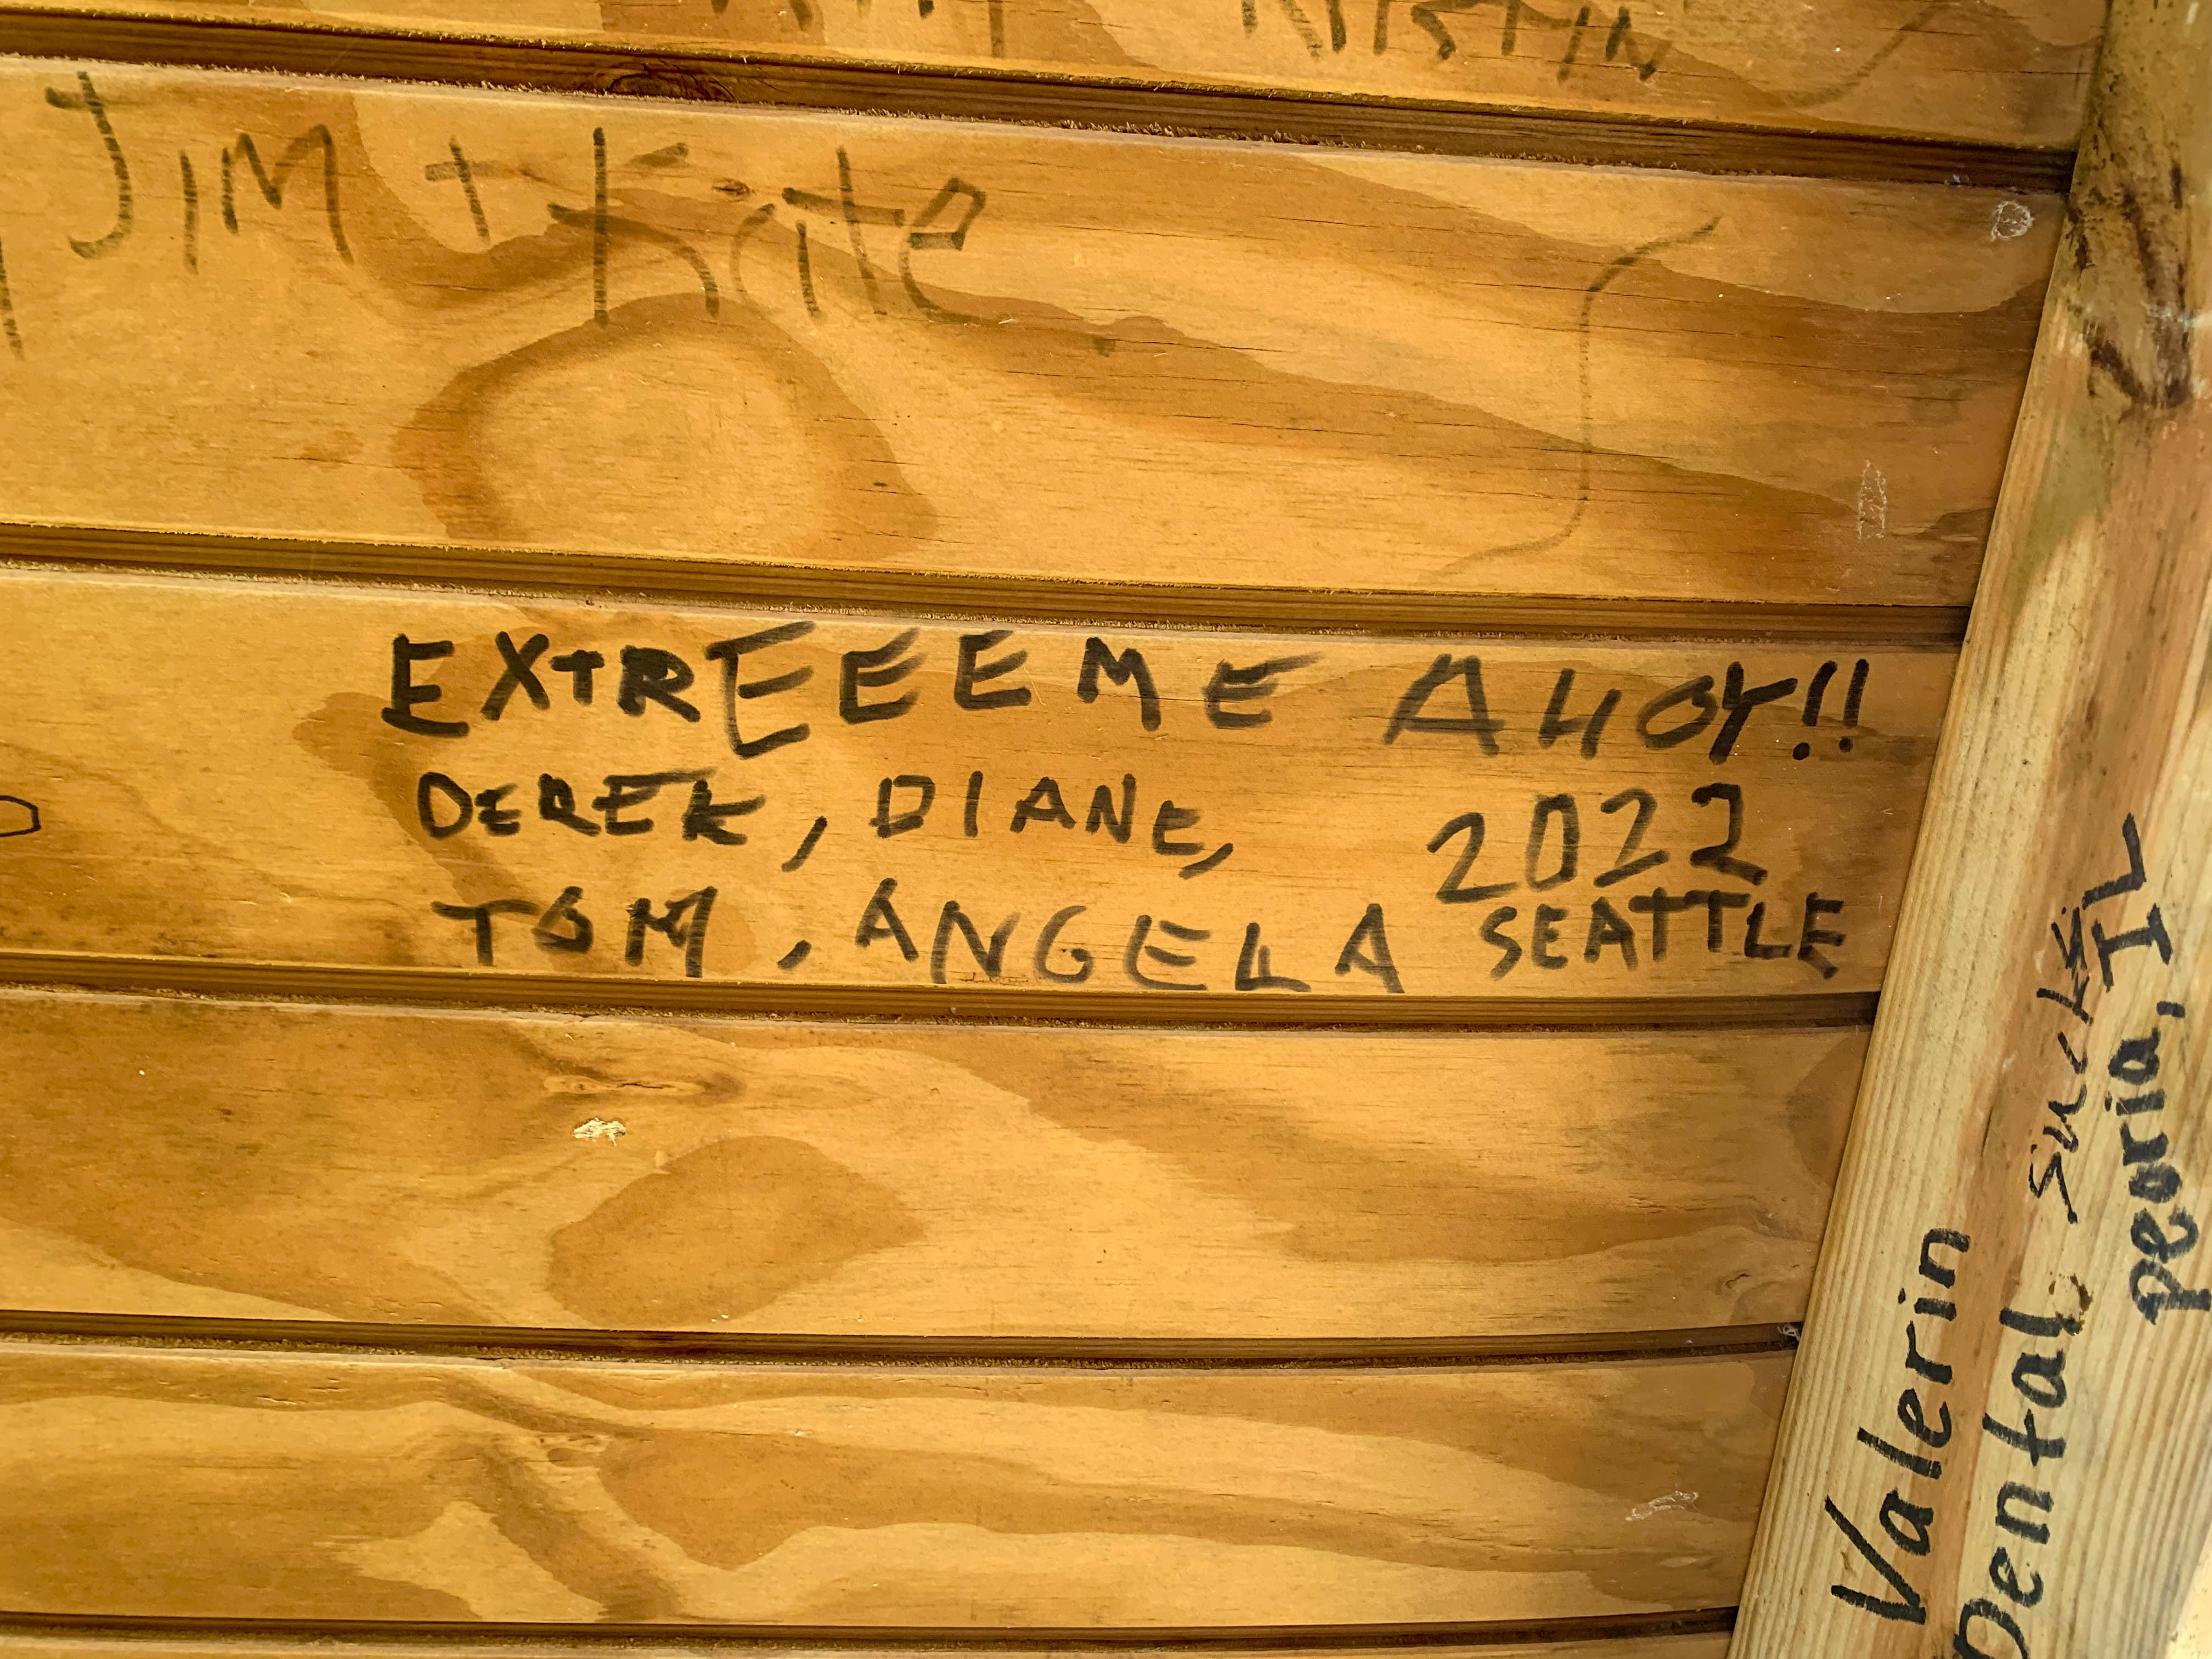 KIRSTIN
JIM + Kate
EXTREEEME AHOY!!
DEREK, DIANE, 2022
TOM, ANGELA SEATTLE
Valerin
Dental sucks
peoria, IL